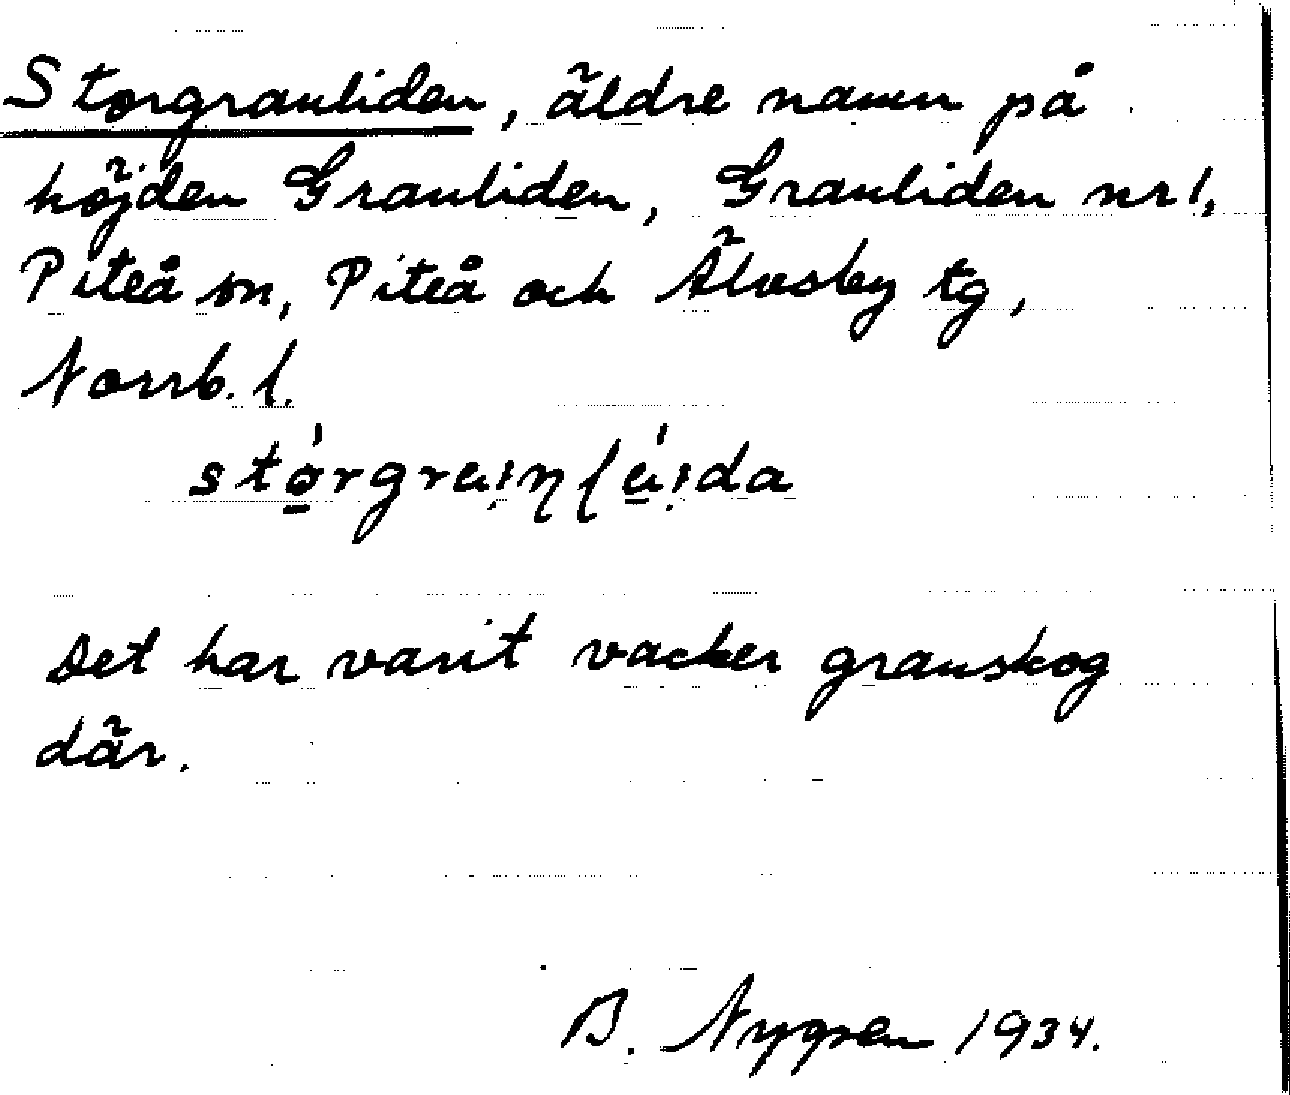 Storgranliden, äldre namn på
höjden Granliden, Granliden nr 1,
Piteå sn, Piteå och Älvsby tg,
Norrb. l.
Det har varit vacker granskog
där.
B. Nygren 1934.